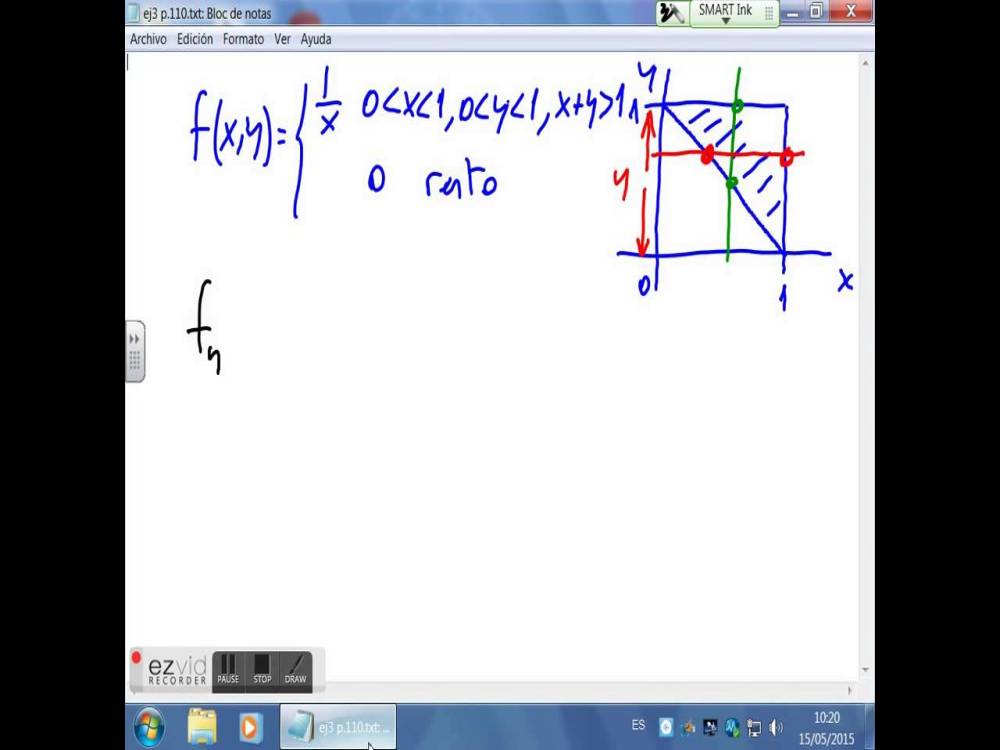 ej3 p.110.txt: Bloc de notas
SMART Ink
Archivo Edición Formato Ver Ayuda
f(x,y)= { 1/x 0<x<1, 0<y<1, x+y>1
0 resto
y
1
y
0
1
x
f y
ezvid
RECORDER
PAUSE STOP DRAW
ej3 p.110.txt: ...
ES
10:20
15/05/2015